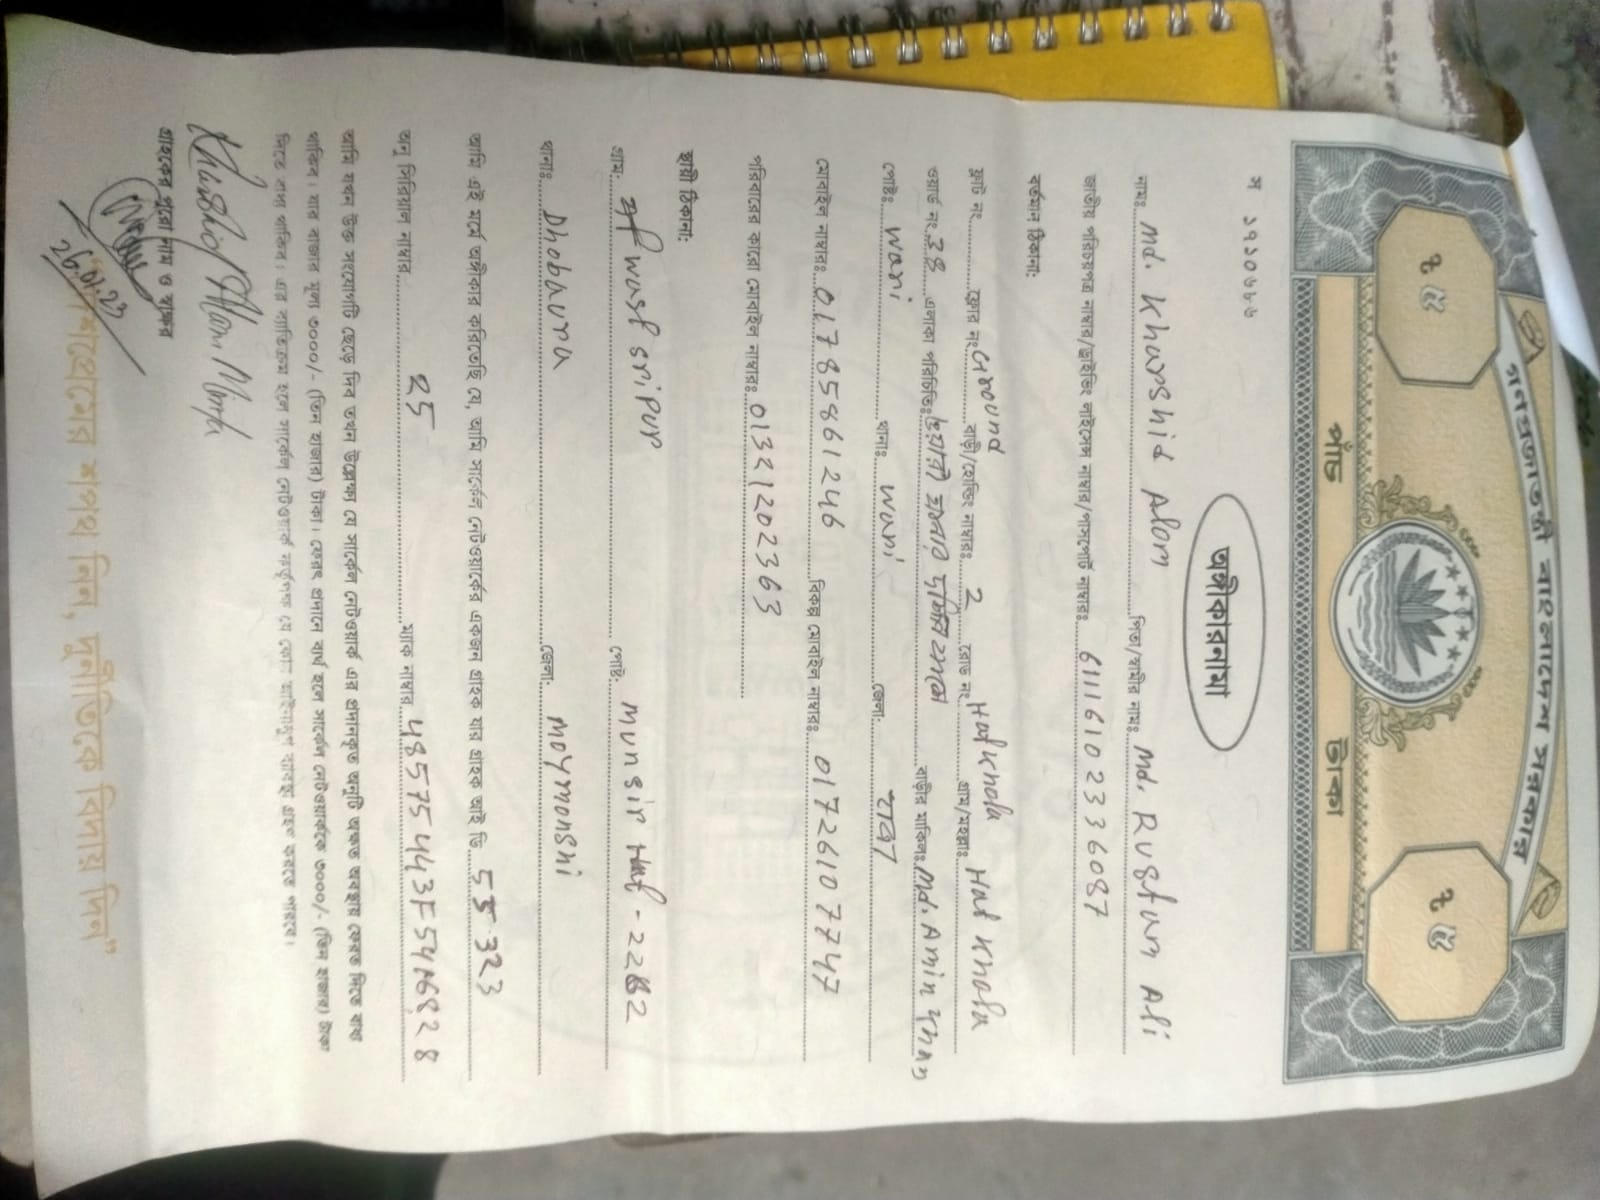 গনপ্রজাতন্ত্রী বাংলাদেশ সরকার
৳ ৫
৳ ৫
পাঁচ টাকা
স ১৭১০৬৮৬
অঙ্গীকারনামা
নামঃ Md. Kharshid Alom পিতা/স্বামীর নামঃ Md. Rustum Ali
জাতীয় পরিচয়পত্র নাম্বার/ড্রাইভিং লাইসেন্স নাম্বার/পাসপোর্ট নাম্বারঃ 6111610233 6087
বর্তমান ঠিকানা:
ফ্ল্যাট নং ফ্লোর নং Ground বাড়ী/হোল্ডিং নাম্বারঃ 2 রোড নং Hatkhola গ্রাম/মহল্লাঃ Hat khola
ওয়ার্ড নং ৩৪ এলাকা পরিচিতিঃ বাড়ীর মালিকঃ Md. Amin Khan
পোষ্টঃ Wari থানাঃ Wari জেলা: ঢাকা
মোবাইল নাম্বারঃ 01785861246 বিকল্প মোবাইল নাম্বারঃ 01726107747
পরিবারের কারো মোবাইল নাম্বারঃ 01321202363
স্থায়ী ঠিকানা:
গ্রাম: West Sripur পোষ্ট: Munsir Hat - 2282
থানাঃ Dhobaura জেলা: Moymonshi
আমি এই মর্মে অঙ্গীকার করিতেছি যে, আমি সার্কেল নেটওয়ার্কের একজন গ্রাহক যার গ্রাহক আই ডি 55 323
অনু সিরিয়াল নাম্বার 25 ম্যাক নাম্বার 48575443F54A6828
আমি যখন উক্ত সংযোগটি ছেড়ে দিব তখন উল্লেখ্য যে সার্কেল নেটওয়ার্ক এর প্রদানকৃত অনুটি অক্ষত অবস্থায় ফেরত দিতে বাধ্য
থাকিব। যার বাজার মূল্য ৩০০০/- (তিন হাজার) টাকা। ফেরৎ প্রদানে ব্যর্থ হলে সার্কেল নেটওয়ার্ককে ৩০০০/- (তিন হাজার) টাকা
দিতে বাধ্য থাকিব। এর ব্যতিক্রম হলে সার্কেল নেটওয়ার্ক কর্তৃপক্ষ যে কোন আইনানুগ ব্যবস্থা গ্রহন করতে পারবে।
Khushid Alam
গ্রাহকের পুরো নাম ও স্বাক্ষর
29.01.23
শপথ নিন, দুর্নীতিকে বিদায় দিন"